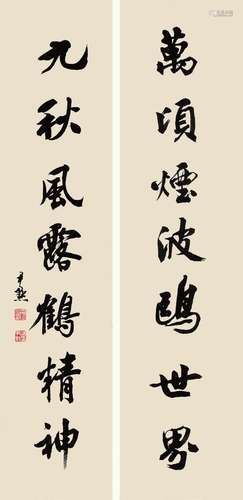 萬頃煙波鷗世界
九秋風露鶴精神
尹默